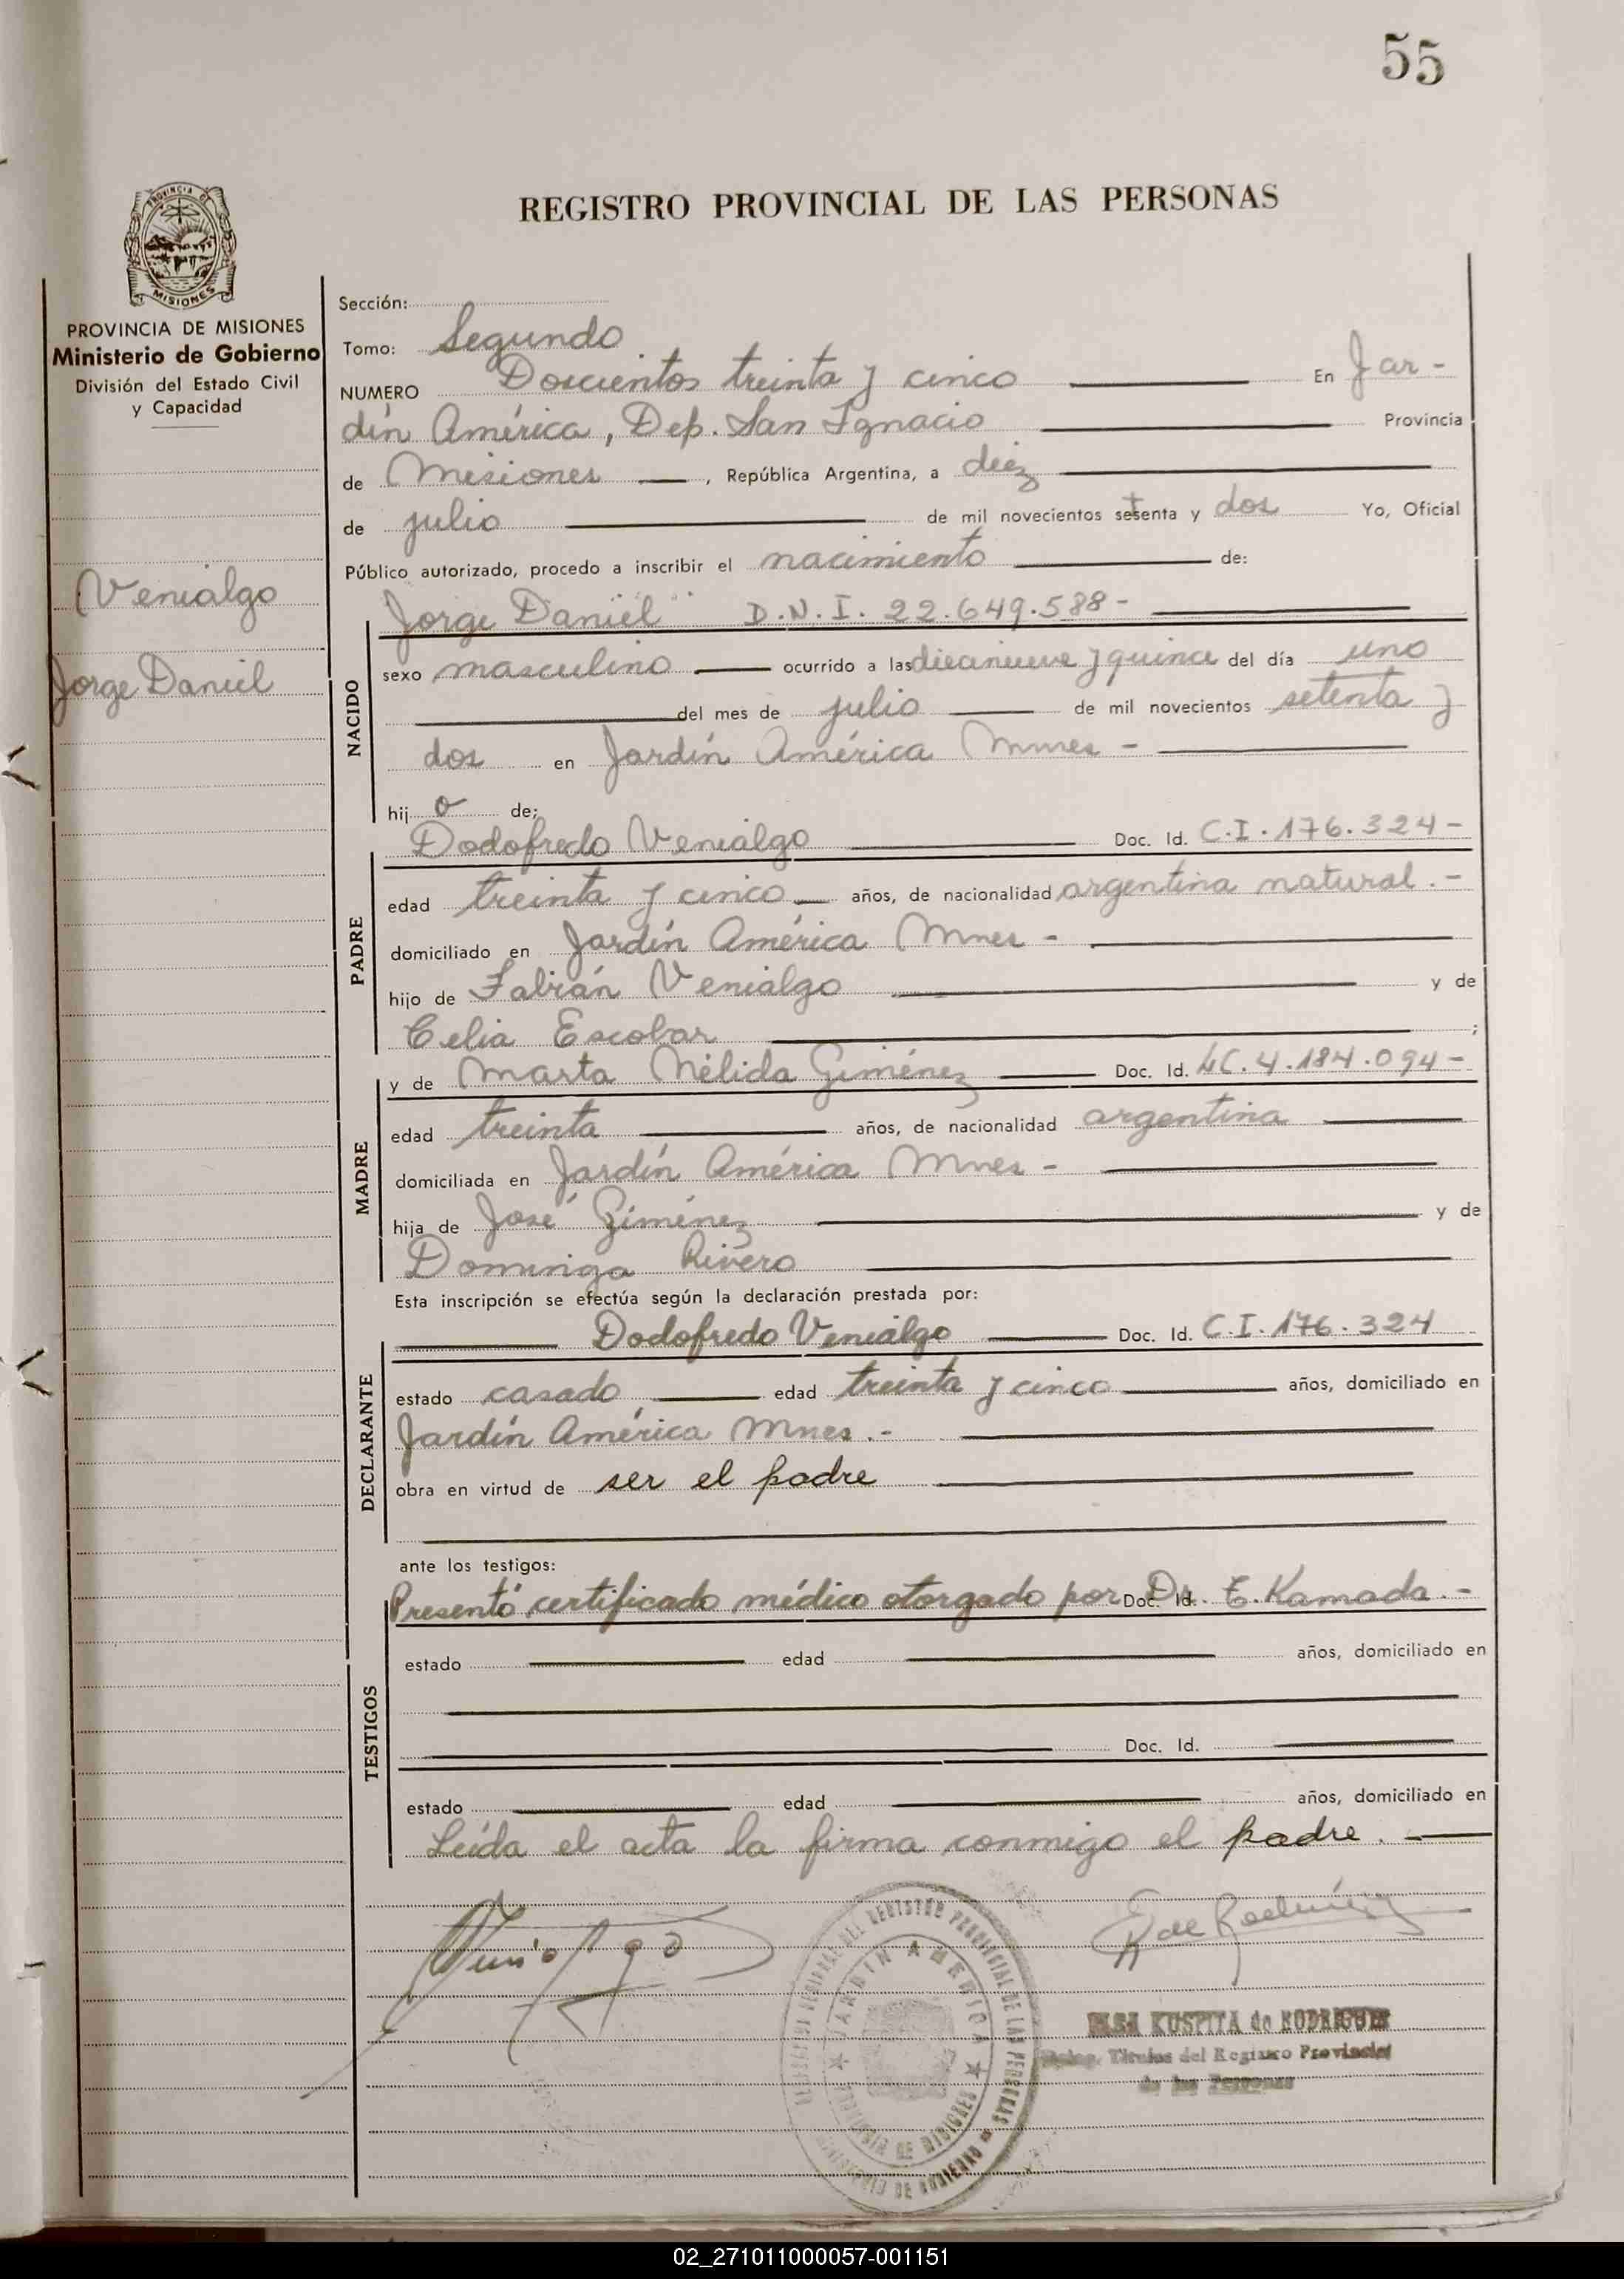 55
REGISTRO PROVINCIAL DE LAS PERSONAS
PROVINCIA DE MISIONES
Ministerio de Gobierno
División del Estado Civil
y Capacidad
Venialgo
Jorge Daniel
Sección:
Tomo: Segundo
NUMERO Doscientos treinta y cinco En Jar-
dín América, Dep. San Ignacio Provincia
de Misiones, República Argentina, a diez
de julio de mil novecientos setenta y dos Yo, Oficial
Público autorizado, procedo a inscribir el nacimiento de:
NACIDO
Jorge Daniel D.N.I. 22.649.588-
sexo masculino ocurrido a las diecinueve y quince del día uno
del mes de julio de mil novecientos setenta y
dos en Jardín América Mnes -
hijo de;
PADRE
Dodofredo Venialgo Doc. Id. C.I. 176.324-
edad treinta y cinco años, de nacionalidad argentina natural.-
domiciliado en Jardín América Mnes -
hijo de Fabián Venialgo y de
Celia Escobar ;
MADRE
y de Marta Nélida Giménez Doc. Id. LC. 4.184.094-
edad treinta años, de nacionalidad argentina
domiciliada en Jardín América Mnes -
hija de José Giménez y de
Dominga Rivero
Esta inscripción se efectúa según la declaración prestada por:
DECLARANTE
Dodofredo Venialgo Doc. Id. C.I. 176.324
estado casado edad treinta y cinco años, domiciliado en
Jardín América Mnes.-
obra en virtud de ser el padre
ante los testigos:
TESTIGOS
Presentó certificado médico otorgado por Doc. Id. Dr. E. Kamada.-
estado edad años, domiciliado en
Doc. Id.
estado edad años, domiciliado en
Leída el acta la firma conmigo el padre.
JARDIN AMERICA
PROVINCIA DE MISIONES
ELSA KUSPITA de RODRIGUEZ
Titular del Registro Provincial
de las Personas
02_271011000057-001151